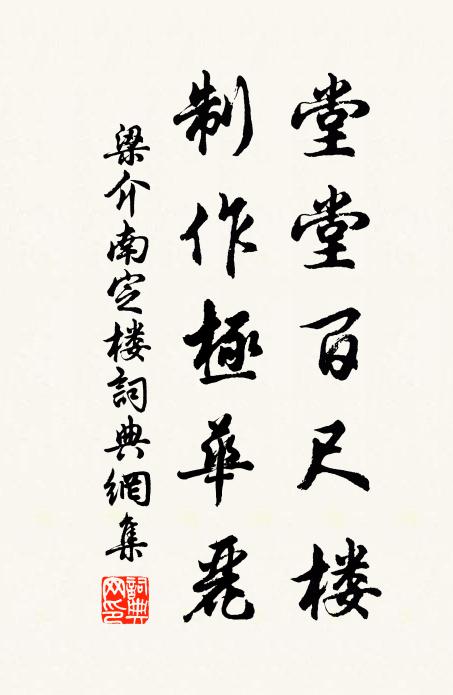 堂堂百尺楼
制作極華麗
梁介南定楼詞典網集
詞典网印